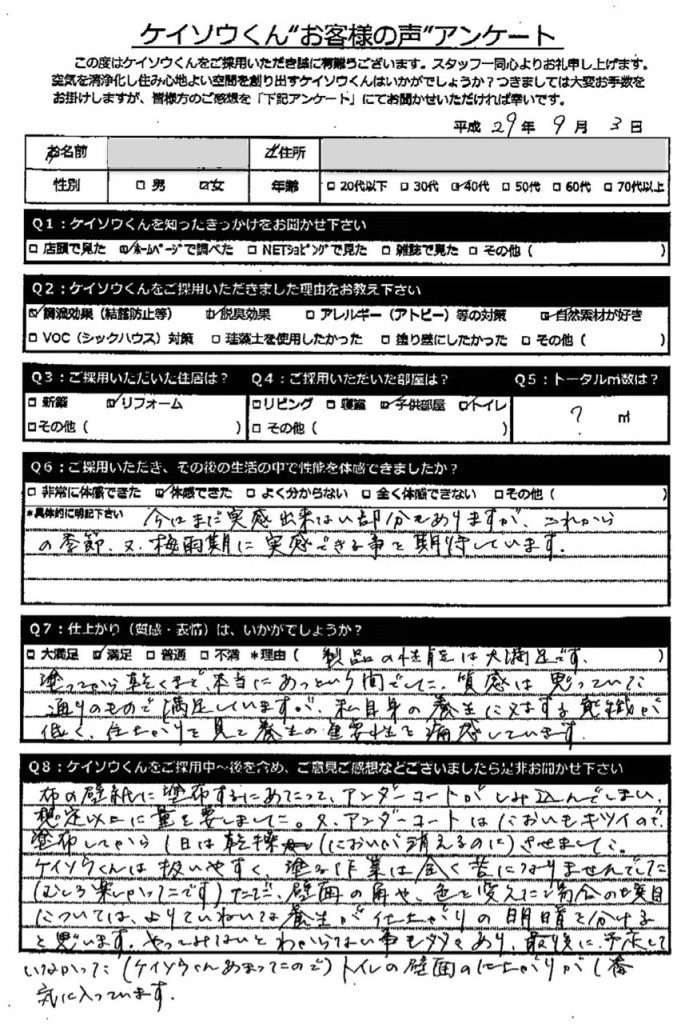 ケイソウくん"お客様の声"アンケート
この度はケイソウくんをご採用いただき誠に有難うございます。スタッフ一同心よりお礼申し上げます。
空気を清浄化し住み心地よい空間を創り出すケイソウくんはいかがでしょうか？つきましては大変お手数を
お掛けしますが、皆様方のご感想を「下記アンケート」にてお聞かせいただければ幸いです。
平成 29 年 9 月 3 日
お名前 ご住所
性別 □ 男 ☑女 年齢 □ 20代以下 □ 30代 ☑40代 □ 50代 □ 60代 □ 70代以上
Q1：ケイソウくんを知ったきっかけをお聞かせ下さい
□ 店頭で見た ☑ホームページで調べた □ NETショピングで見た □ 雑誌で見た □ その他（ ）
Q2：ケイソウくんをご採用いただきました理由をお教え下さい
☑調湿効果（結露防止等） ☑脱臭効果 □ アレルギー（アトピー）等の対策 ☑自然素材が好き
□ VOC（シックハウス）対策 □ 珪藻土を使用したかった □ 塗り壁にしたかった □ その他（ ）
Q3：ご採用いただいた住居は？ Q4：ご採用いただいた部屋は？ Q5：トータル㎡数は？
□ 新築 ☑リフォーム □リビング □ 寝室 ☑子供部屋 ☑トイレ ? ㎡
□その他（ ） □ その他（ ）
Q6：ご採用いただき、その後の生活の中で性能を体感できましたか？
□ 非常に体感できた ☑体感できた □ よく分からない □ 全く体感できない □その他（ ）
*具体的に明記下さい 今はまだ実感出来ない部分もありますが、これから
の季節、又、梅雨期に実感できる事を期待しています。
Q7：仕上がり（質感・表情）は、いかがでしょうか？
□ 大満足 ☑満足 □ 普通 □ 不満 *理由（ 製品の性能は大満足です。 ）
塗ってから乾くまで、本当にあっという間でした。質感は思っていた
通りのもので満足していますが、私自身の養生に対する意識が
低く、仕上がりを見て養生の重要性を痛感しています。
Q8：ケイソウくんをご採用中～後を含め、ご意見ご感想などございましたら是非お聞かせ下さい
布の壁紙に塗布するにあたって、アンダーコートがしみ込んでしまい、
想定以上に量を要しました。又、アンダーコートはにおいもキツイので、
塗布してから1日は乾燥（においが消えるのに）させました。
ケイソウくんは扱いやすく、塗る作業は全く苦になりませんでした
（むしろ楽しかったです）ただ、壁面の角や、色を変えた場合の境目
については、よりていねいな養生が仕上がりの明暗を分ける
と思います。やってみないとわからない事も多々あり、最後に、予定して
いなかった（ケイソウくんあまってたので）トイレの壁面の仕上がりが1番
気に入っています。